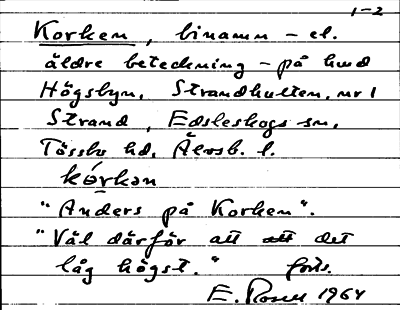 1-2
Korken, binamn - el.
äldre beteckning - på hmd
Högsbyn, Strandhulten, nr 1
Strand, Edsleskogs sn,
Tössbo hd, Älvsb. l.
kórkən
"Anders på Korken".
"Väl därför att att det
låg högst." forts.
E. Rosell 1964